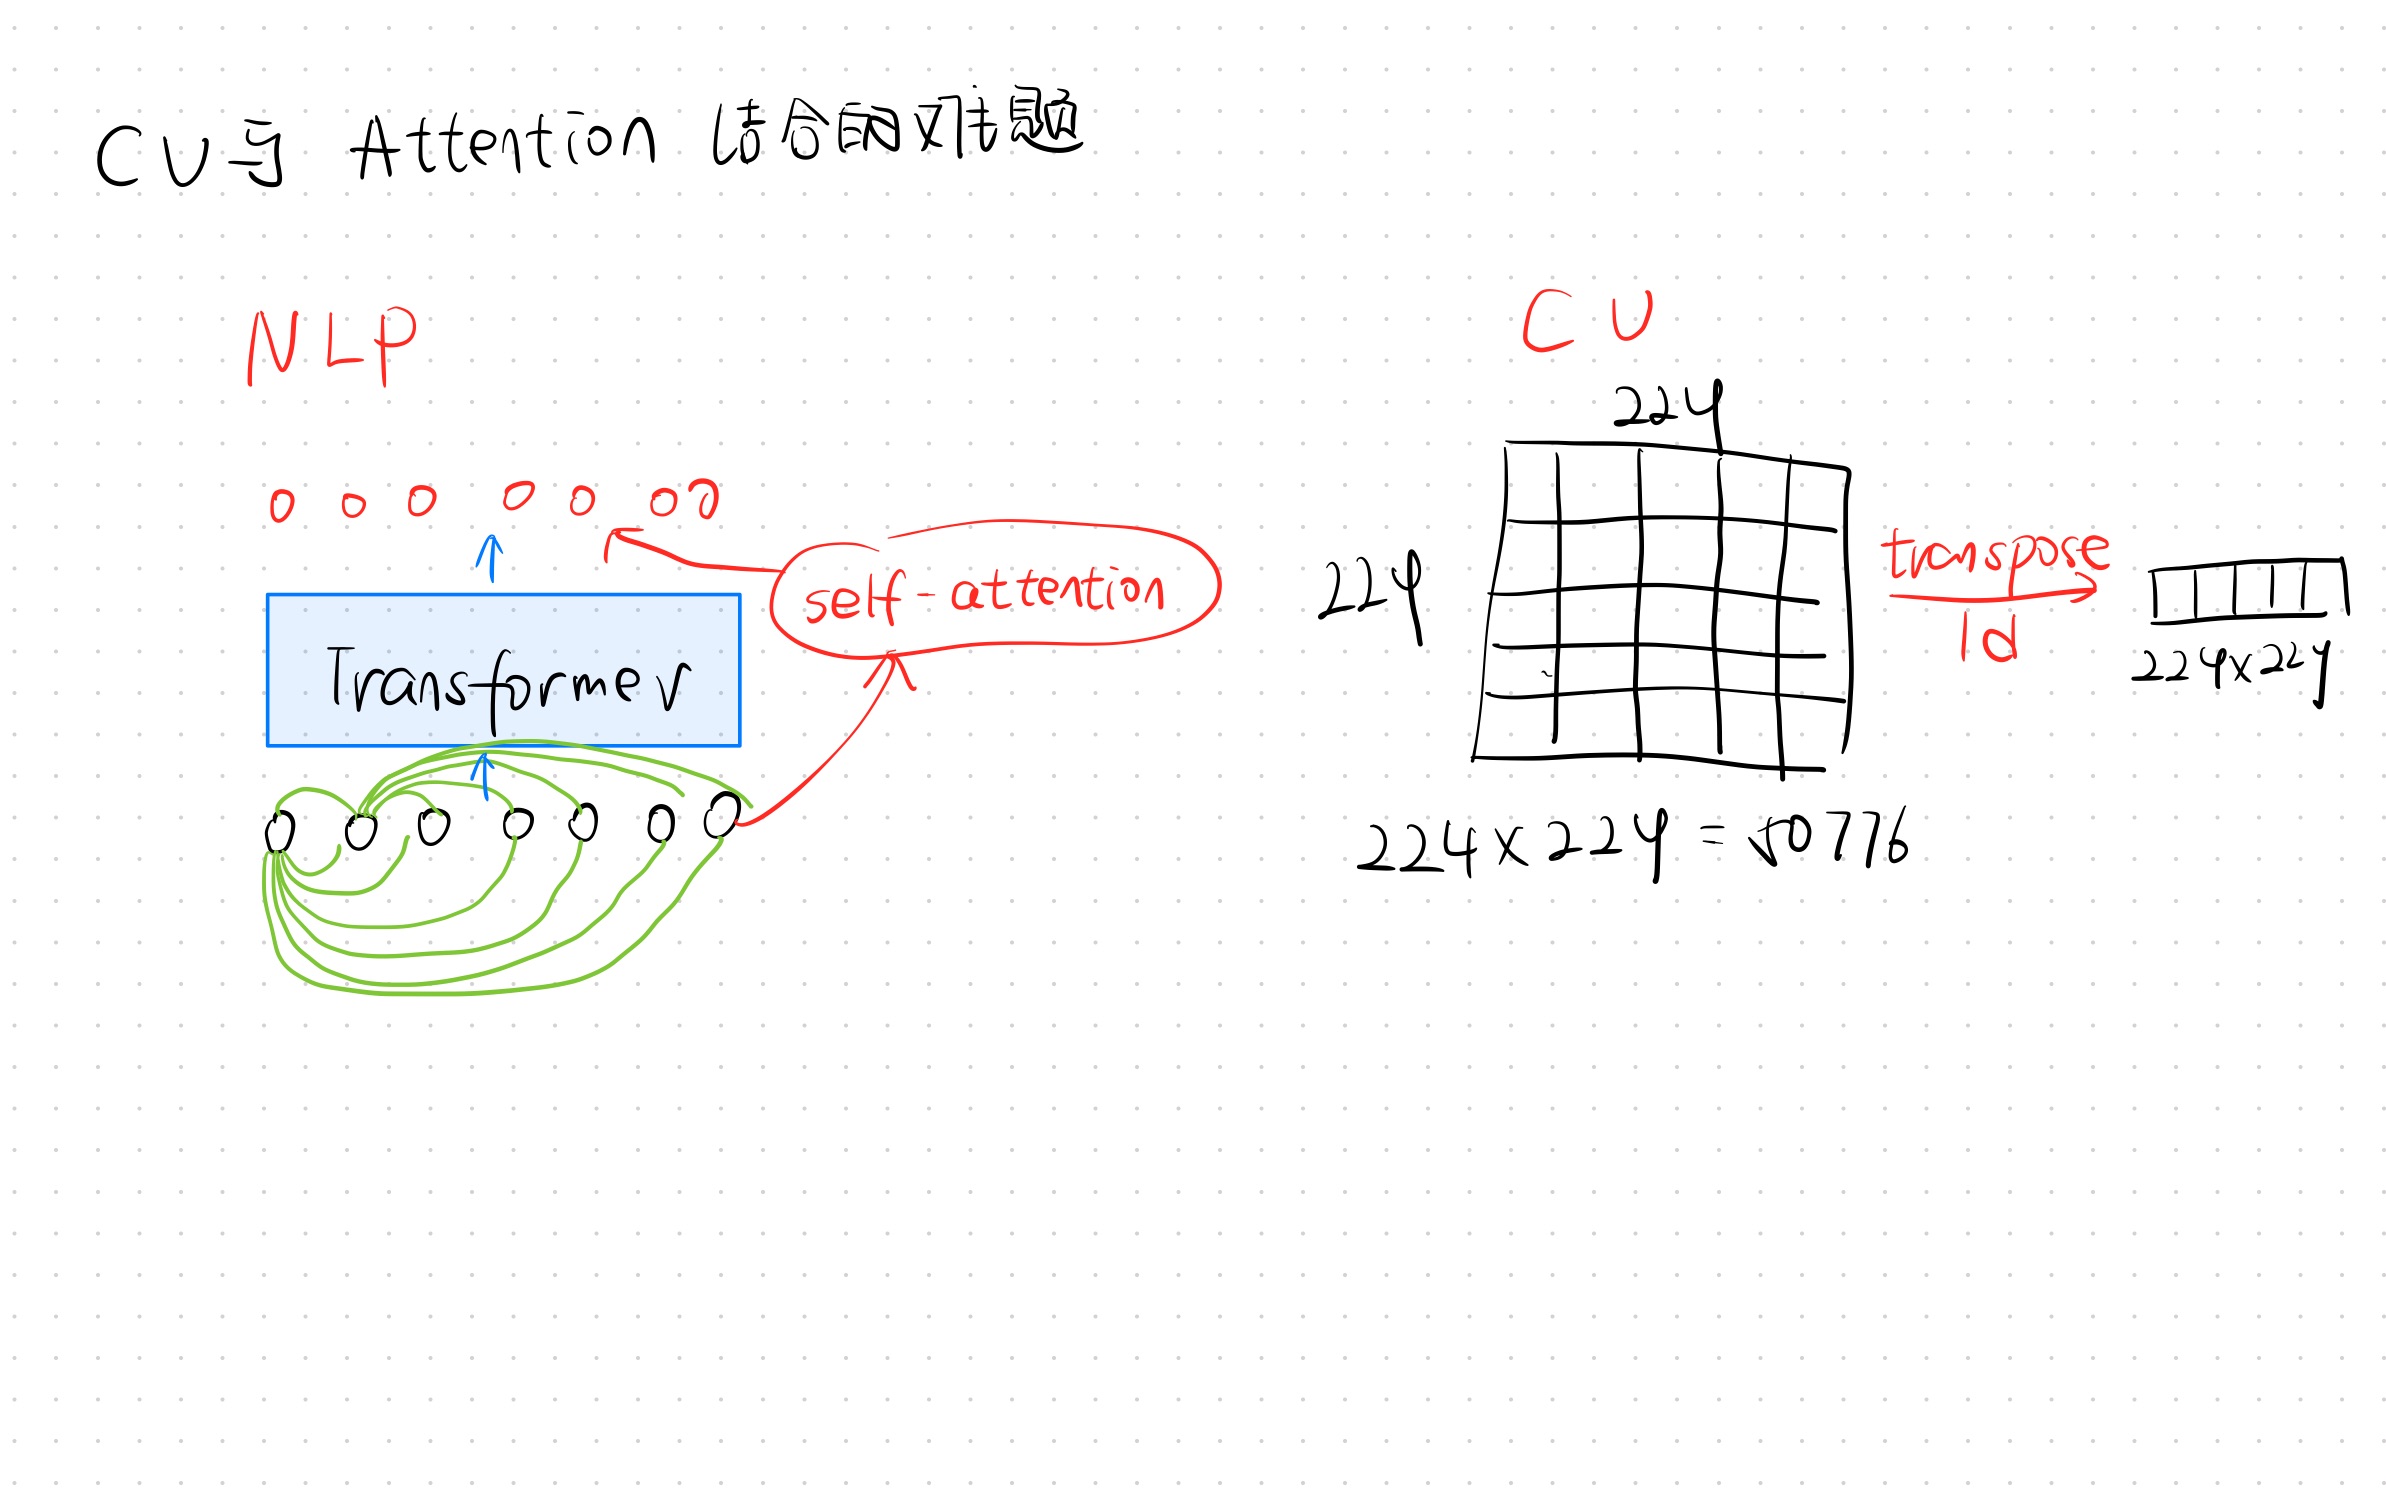 CV与 Attention 结合的难题
NLP
self-attention
Transformer
CV
224
224
transpose
1d
224x224
224x224=50776